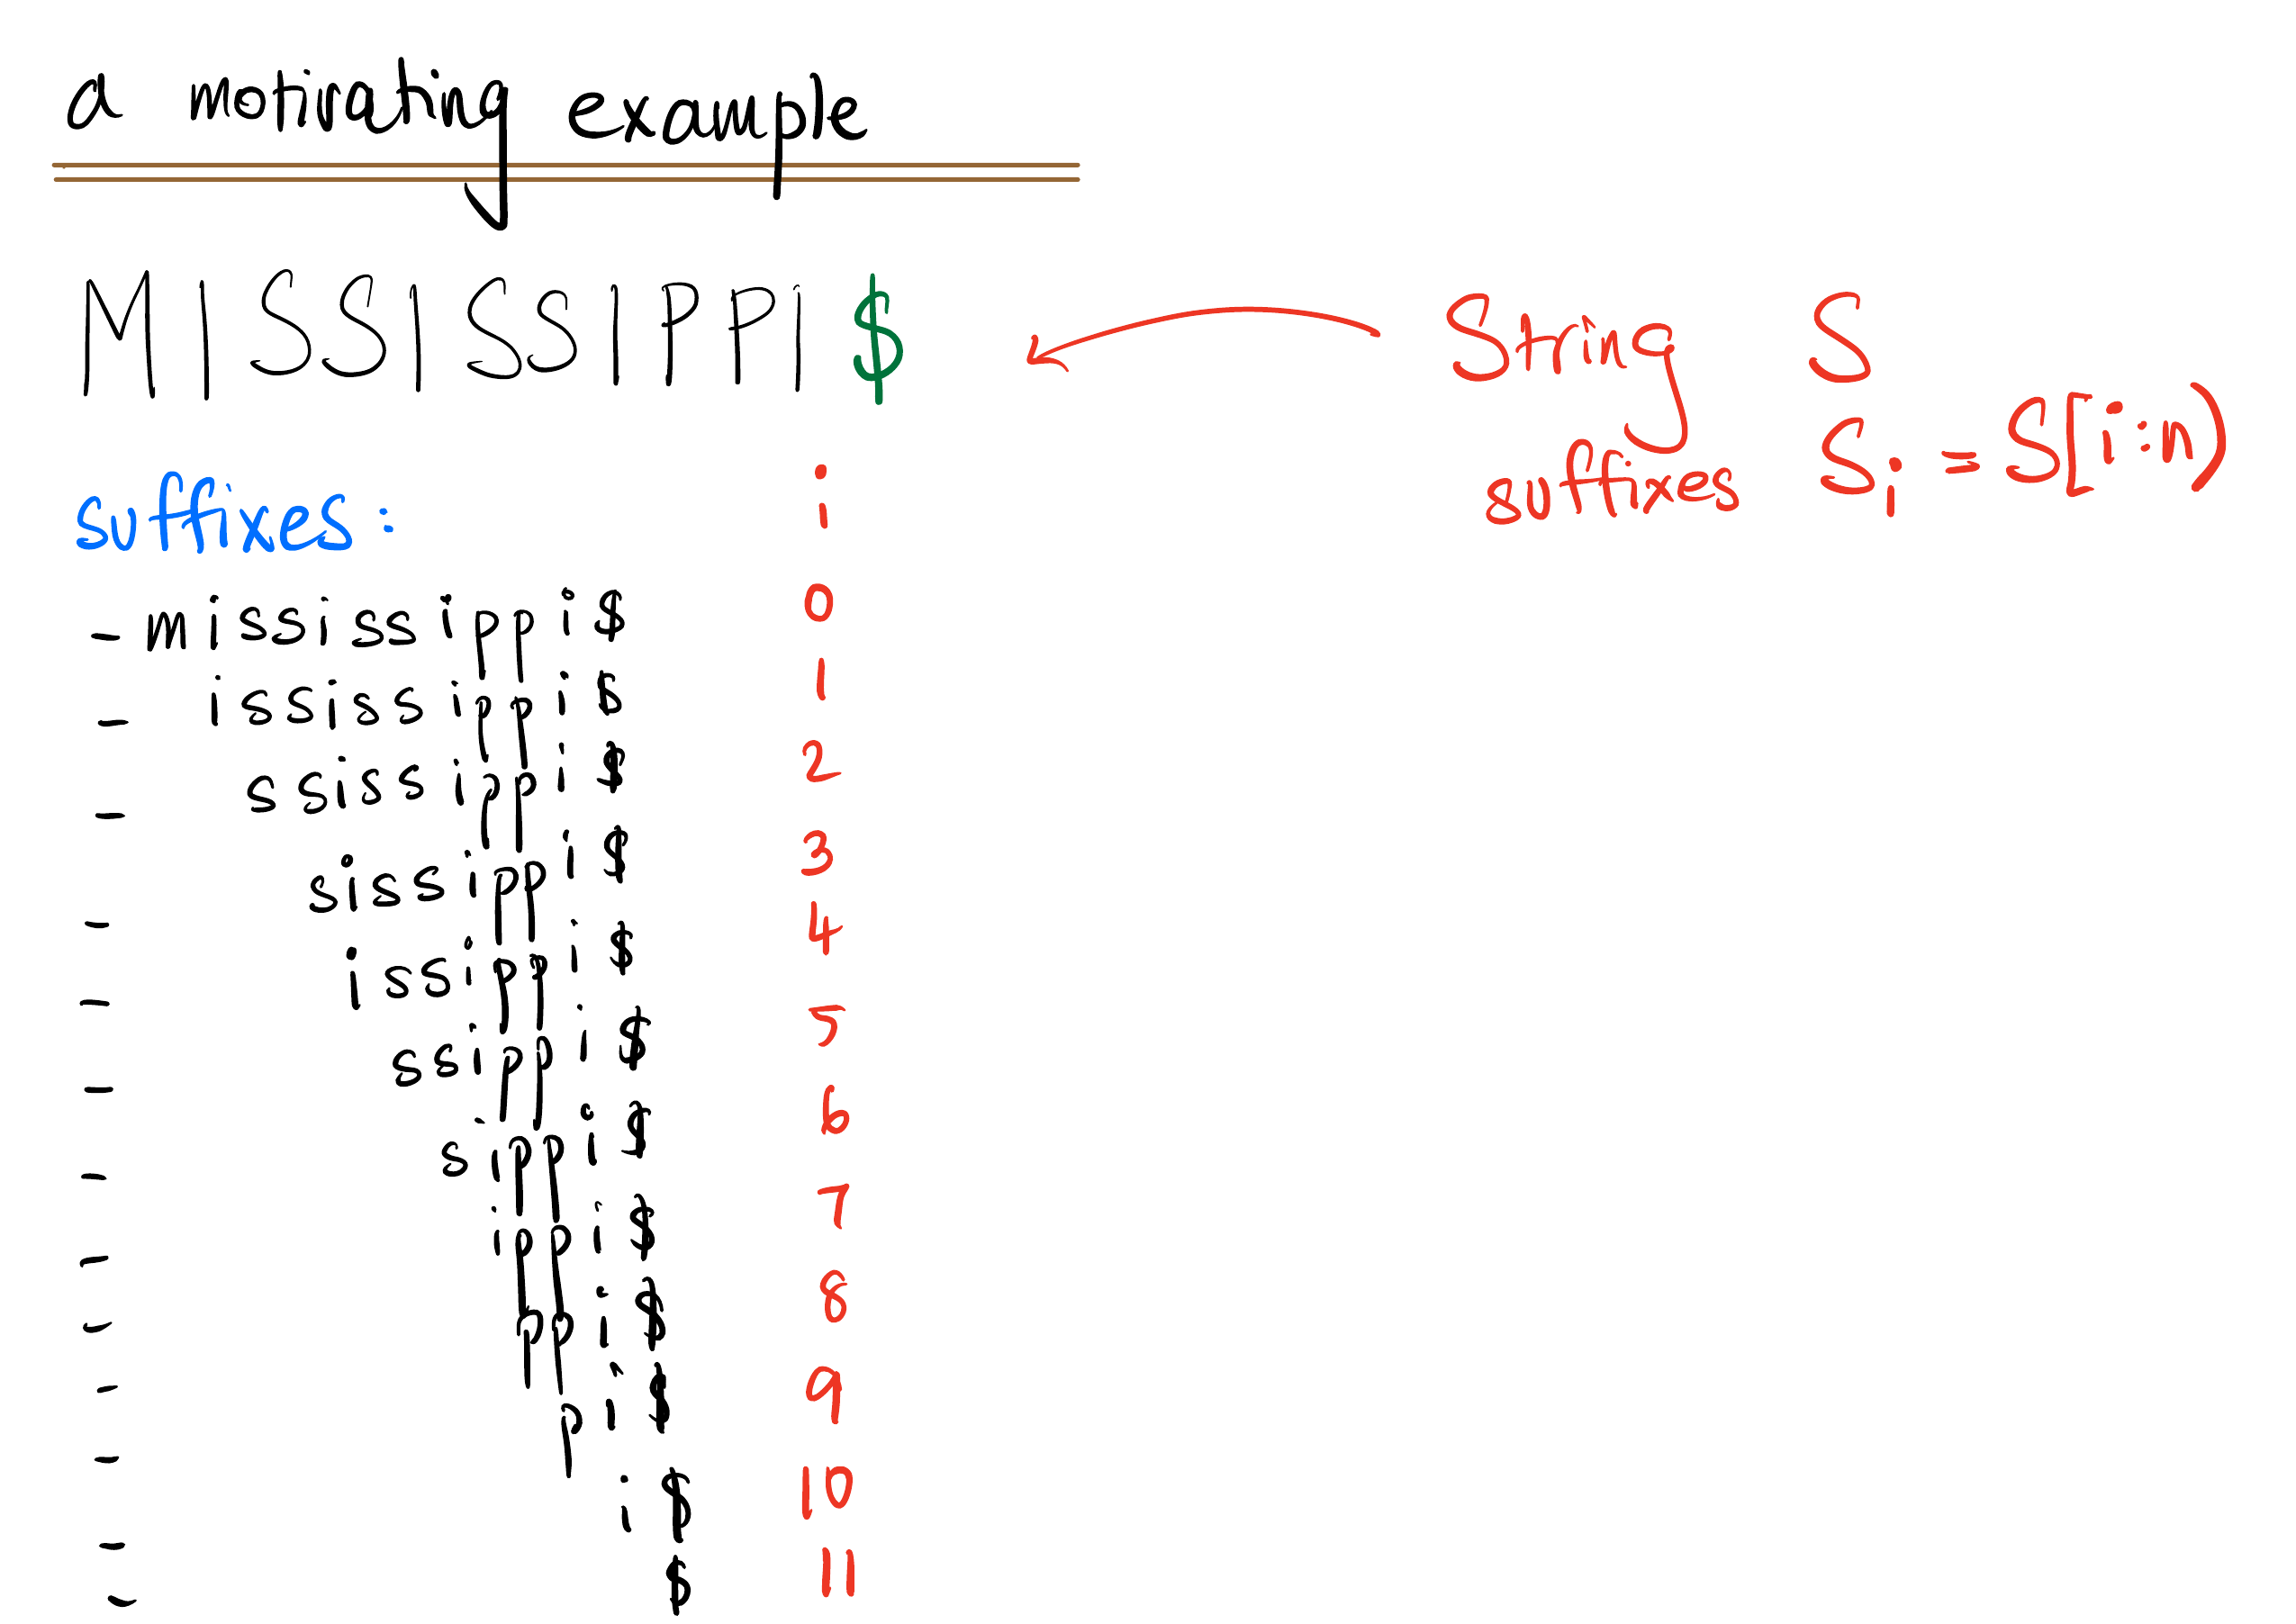 a motivating example
MISSISSIPPI$ String S
suffixes: i suffixes Si = S[i:n)
- mississippi$ 0
- ississippi$ 1
- ssissippi$ 2
- sissippi$ 3
- issippi$ 4
- ssippi$ 5
- sippi$ 6
- ippi$ 7
- ppi$ 8
- pi$ 9
- i$ 10
- $ 11